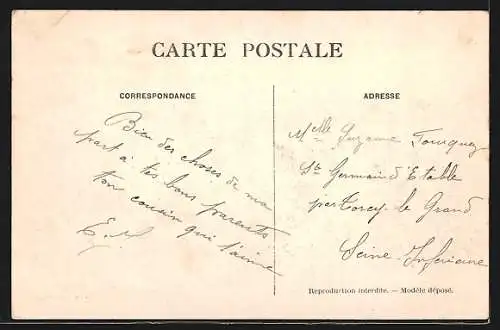 CARTE POSTALE
CORRESPONDANCE
Bien des choses de ma
part à tes bons parents
ton cousin qui t'aime
ADRESSE
Melle Suzanne
St Germain d'Etable
par Torcy-le-Grand
Seine-Inférieure
Reproduction interdite. — Modèle déposé.